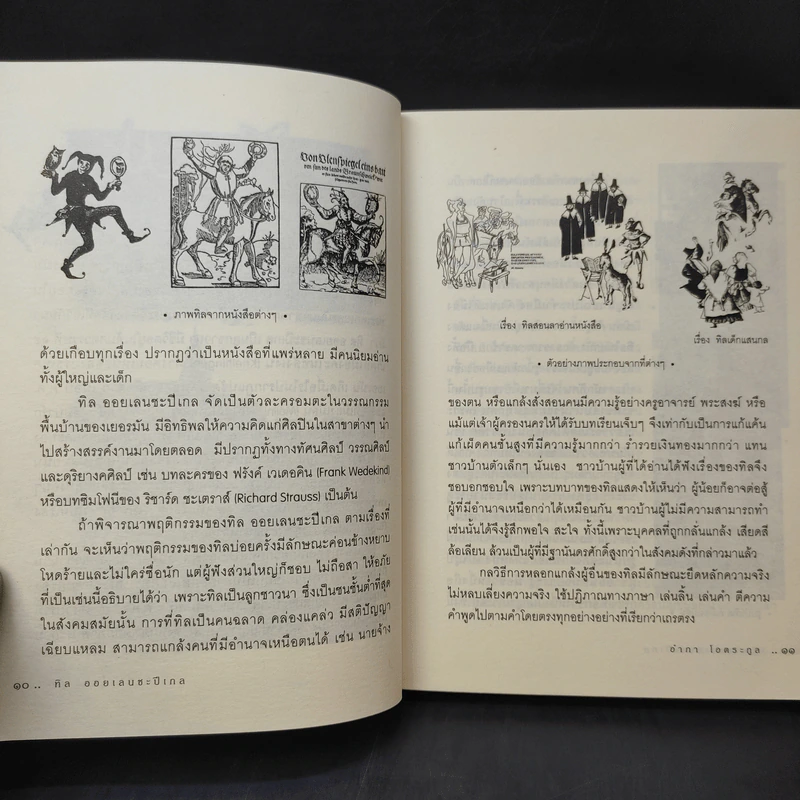 Von Ulenspiegel eins baur
• ภาพทิลจากหนังสือต่างๆ •
ด้วยเกือบทุกเรื่อง ปรากฏว่าเป็นหนังสือที่แพร่หลาย มีคนนิยมอ่าน
ทั้งผู้ใหญ่และเด็ก
ทิล ออยเลนชะปีเกล จัดเป็นตัวละครอมตะในวรรณกรรม
พื้นบ้านของเยอรมัน มีอิทธิพลให้ความคิดแก่ศิลปินในสาขาต่างๆ นำ
ไปสร้างสรรค์งานมาโดยตลอด มีปรากฏทั้งทางทัศนศิลป์ วรรณศิลป์
และดุริยางคศิลป์ เช่น บทละครของ ฟรังค์ เวเดอคิน (Frank Wedekind)
หรือบทซิมโฟนีของ ริชาร์ด ชะเตราส์ (Richard Strauss) เป็นต้น
ถ้าพิจารณาพฤติกรรมของทิล ออยเลนชะปีเกล ตามเรื่องที่
เล่ากัน จะเห็นว่าพฤติกรรมของทิลบ่อยครั้งมีลักษณะค่อนข้างหยาบ
โหดร้ายและไม่ใคร่ซื่อนัก แต่ผู้ฟังส่วนใหญ่ก็ชอบ ไม่ถือสา ให้อภัย
ที่เป็นเช่นนี้อธิบายได้ว่า เพราะทิลเป็นลูกชาวนา ซึ่งเป็นชนชั้นต่ำที่สุด
ในสังคมสมัยนั้น การที่ทิลเป็นคนฉลาด คล่องแคล่ว มีสติปัญญา
เฉียบแหลม สามารถแกล้งคนที่มีอำนาจเหนือตนได้ เช่น นายจ้าง
๑๐ .. ทิล ออยเลนชะปีเกล
เรื่อง ทิลสอนลาอ่านหนังสือ
เรื่อง ทิลเด็กแสนกล
• ตัวอย่างภาพประกอบจากที่ต่างๆ •
ของตน หรือแกล้งสั่งสอนคนมีความรู้อย่างครูอาจารย์ พระสงฆ์ หรือ
แม้แต่เจ้าผู้ครองนครให้ได้รับบทเรียนเจ็บๆ จึงเท่ากับเป็นการแก้แค้น
แก้เผ็ดคนชั้นสูงที่มีความรู้มากกว่า ร่ำรวยเงินทองมากกว่า แทน
ชาวบ้านตัวเล็กๆ นั่นเอง ชาวบ้านผู้ที่ได้อ่านได้ฟังเรื่องของทิลจึง
ชอบอกชอบใจ เพราะบทบาทของทิลแสดงให้เห็นว่า ผู้น้อยก็อาจต่อสู้
ผู้ที่มีอำนาจเหนือกว่าได้เหมือนกัน ชาวบ้านผู้ไม่มีความสามารถทำ
เช่นนั้นได้จึงรู้สึกพอใจ สะใจ ทั้งนี้เพราะบุคคลที่ถูกกลั่นแกล้ง เสียดสี
ล้อเลียน ล้วนเป็นผู้ที่มีฐานันดรศักดิ์สูงกว่าในสังคมดังที่กล่าวมาแล้ว
กลวิธีการหลอกแกล้งผู้อื่นของทิลมีลักษณะยึดหลักความจริง
ไม่หลบเลี่ยงความจริง ใช้ปฏิภาณทางภาษา เล่นลิ้น เล่นคำ ตีความ
คำพูดไปตามคำโดยตรงทุกอย่างอย่างที่เรียกว่าเถรตรง
อำภา โอตระกูล .. ๑๑